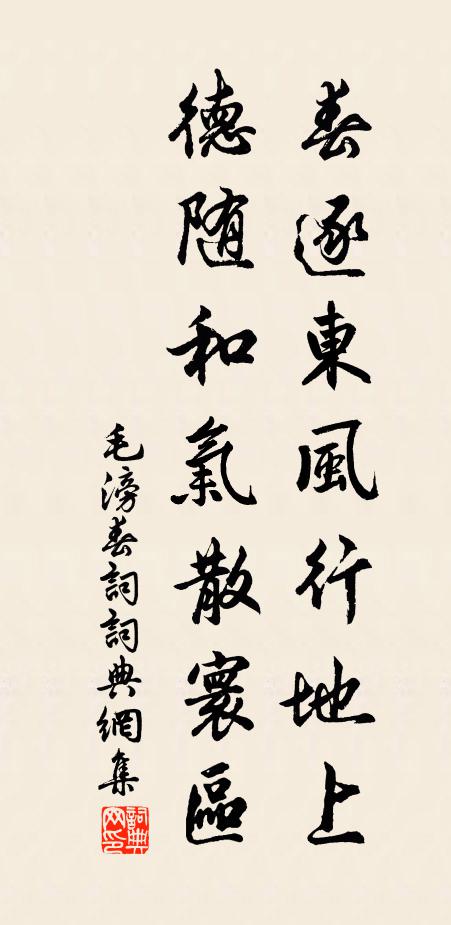 春逐東風行地上
德随和氣散寰區
毛滂春詞詞典網集
詞典网印